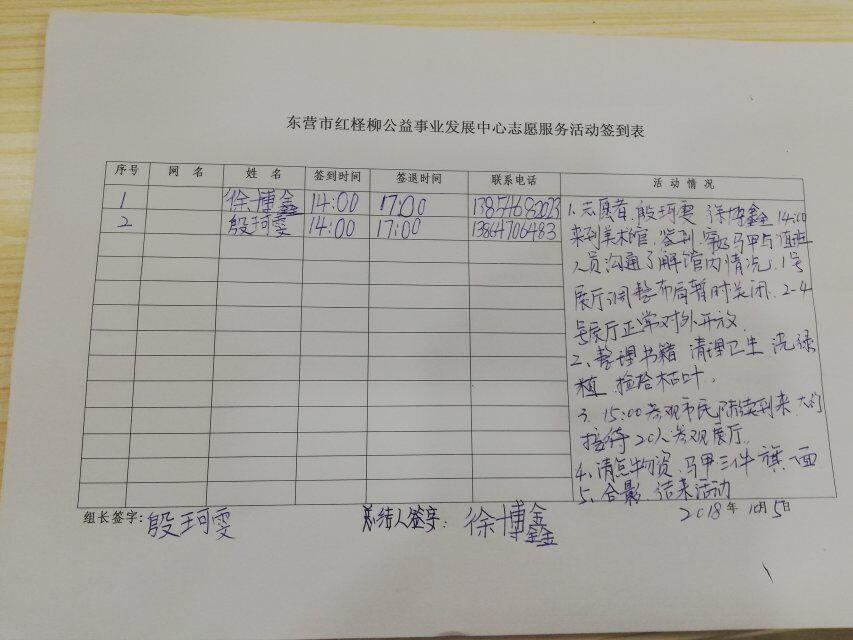 东营市红柽柳公益事业发展中心志愿服务活动签到表
序号 网 名 姓 名 签到时间 签退时间 联系电话 活 动 情 况
1 徐博鑫 14:00 17:00 13854682023
2 殷珂雯 14:00 17:00 13864706483
1.志愿者.殷珂雯 徐博鑫 14:00
来到美术馆.签到.穿好马甲与值班
人员沟通了解馆内情况.1号
展厅调整布局暂时关闭.2-4
号展厅正常对外开放.
2、整理书籍 清理卫生 浇绿
植 捡拾枯叶.
3. 15:00参观市民陆续到来 大约
接待20人参观展厅.
4、清点物资.马甲三件 旗一面
5、合影.结束活动
2018年 10月5日
组长签字:殷珂雯 总结人签字:徐博鑫